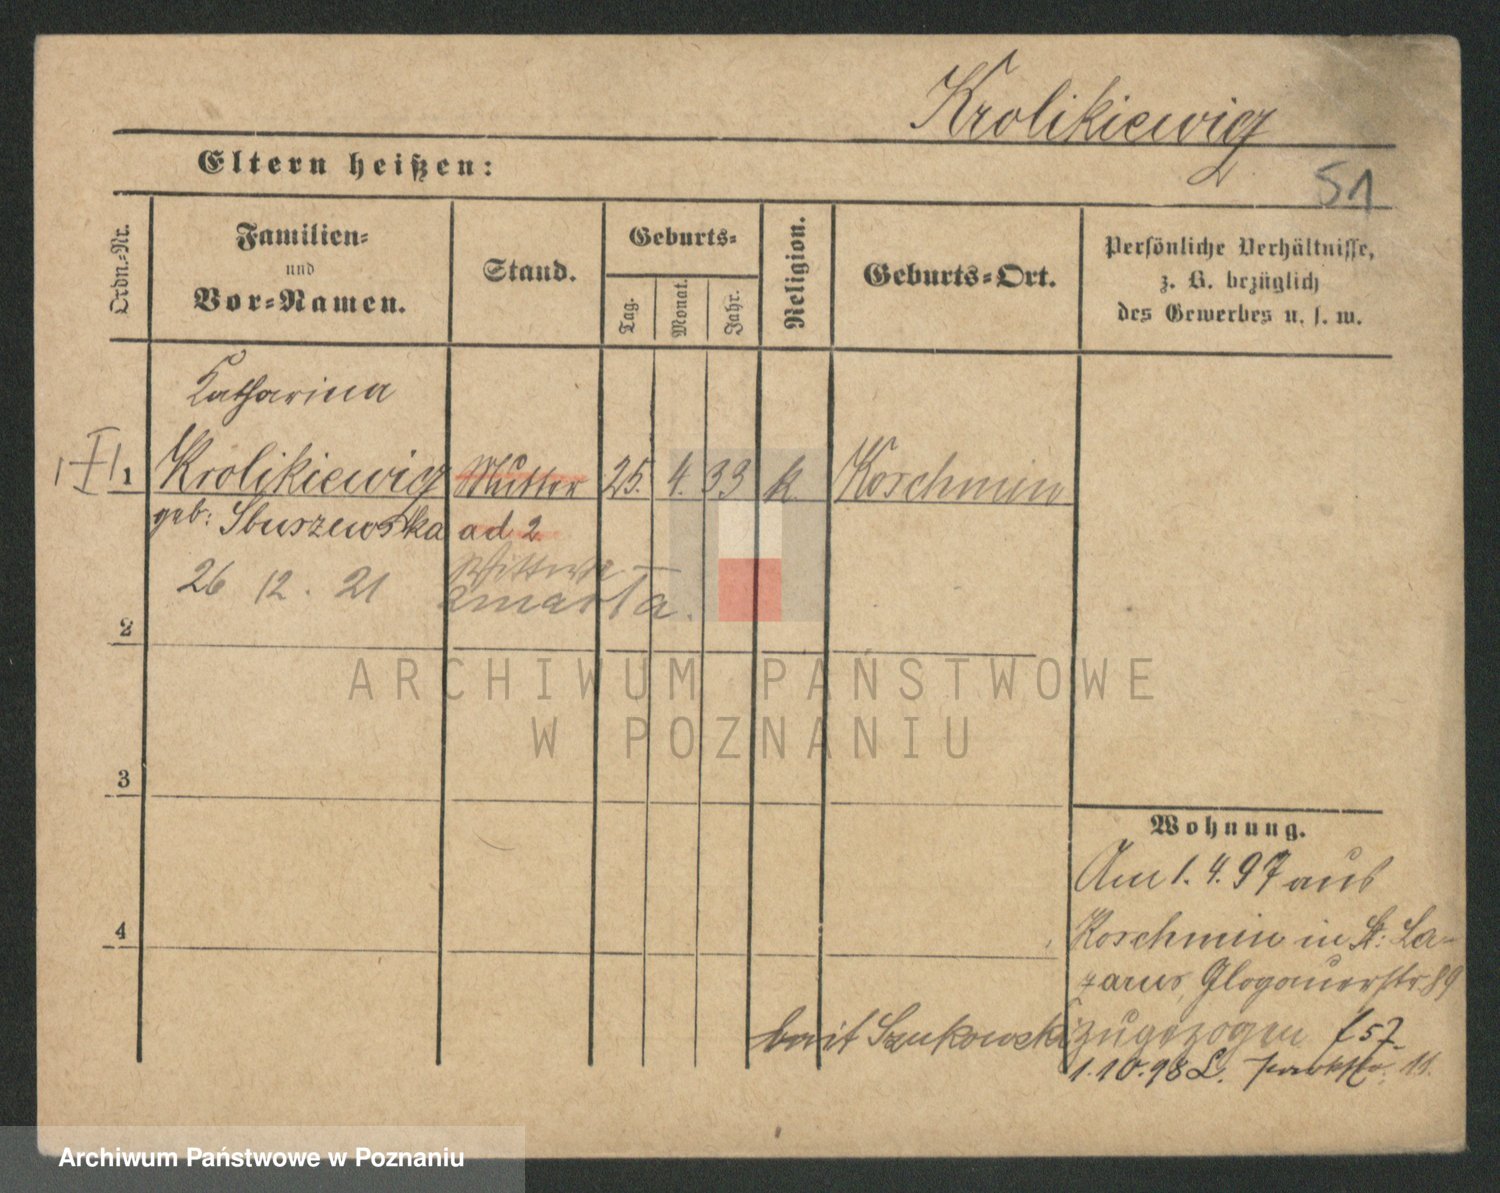 Krolikiewicz
Eltern heißen:
51
Ordn.-Nr.
Familien-
und
Vor-Namen.
Stand.
Geburts-
Tag.
Monat.
Jahr.
Religion.
Geburts-Ort.
Persönliche Verhältnisse,
z. B. bezüglich
des Gewerbes u. s. w.
Katharina
1 Krolikiewicz Mutter 25. 4. 33 k. Koschmin
geb: Sbuszewska ad 2
Wittwe
26 12. 21 zmarła.
2
ARCHIWUM PAŃSTWOWE
W POZNANIU
3
Wohnung.
Am 1. 4. 97 aus
4
Koschmin in St: La-
zarus, Glogauerstr 89
bei Szukowski zugezogen
1. 10. 98 L. Parkstr. 11.
Archiwum Państwowe w Poznaniu